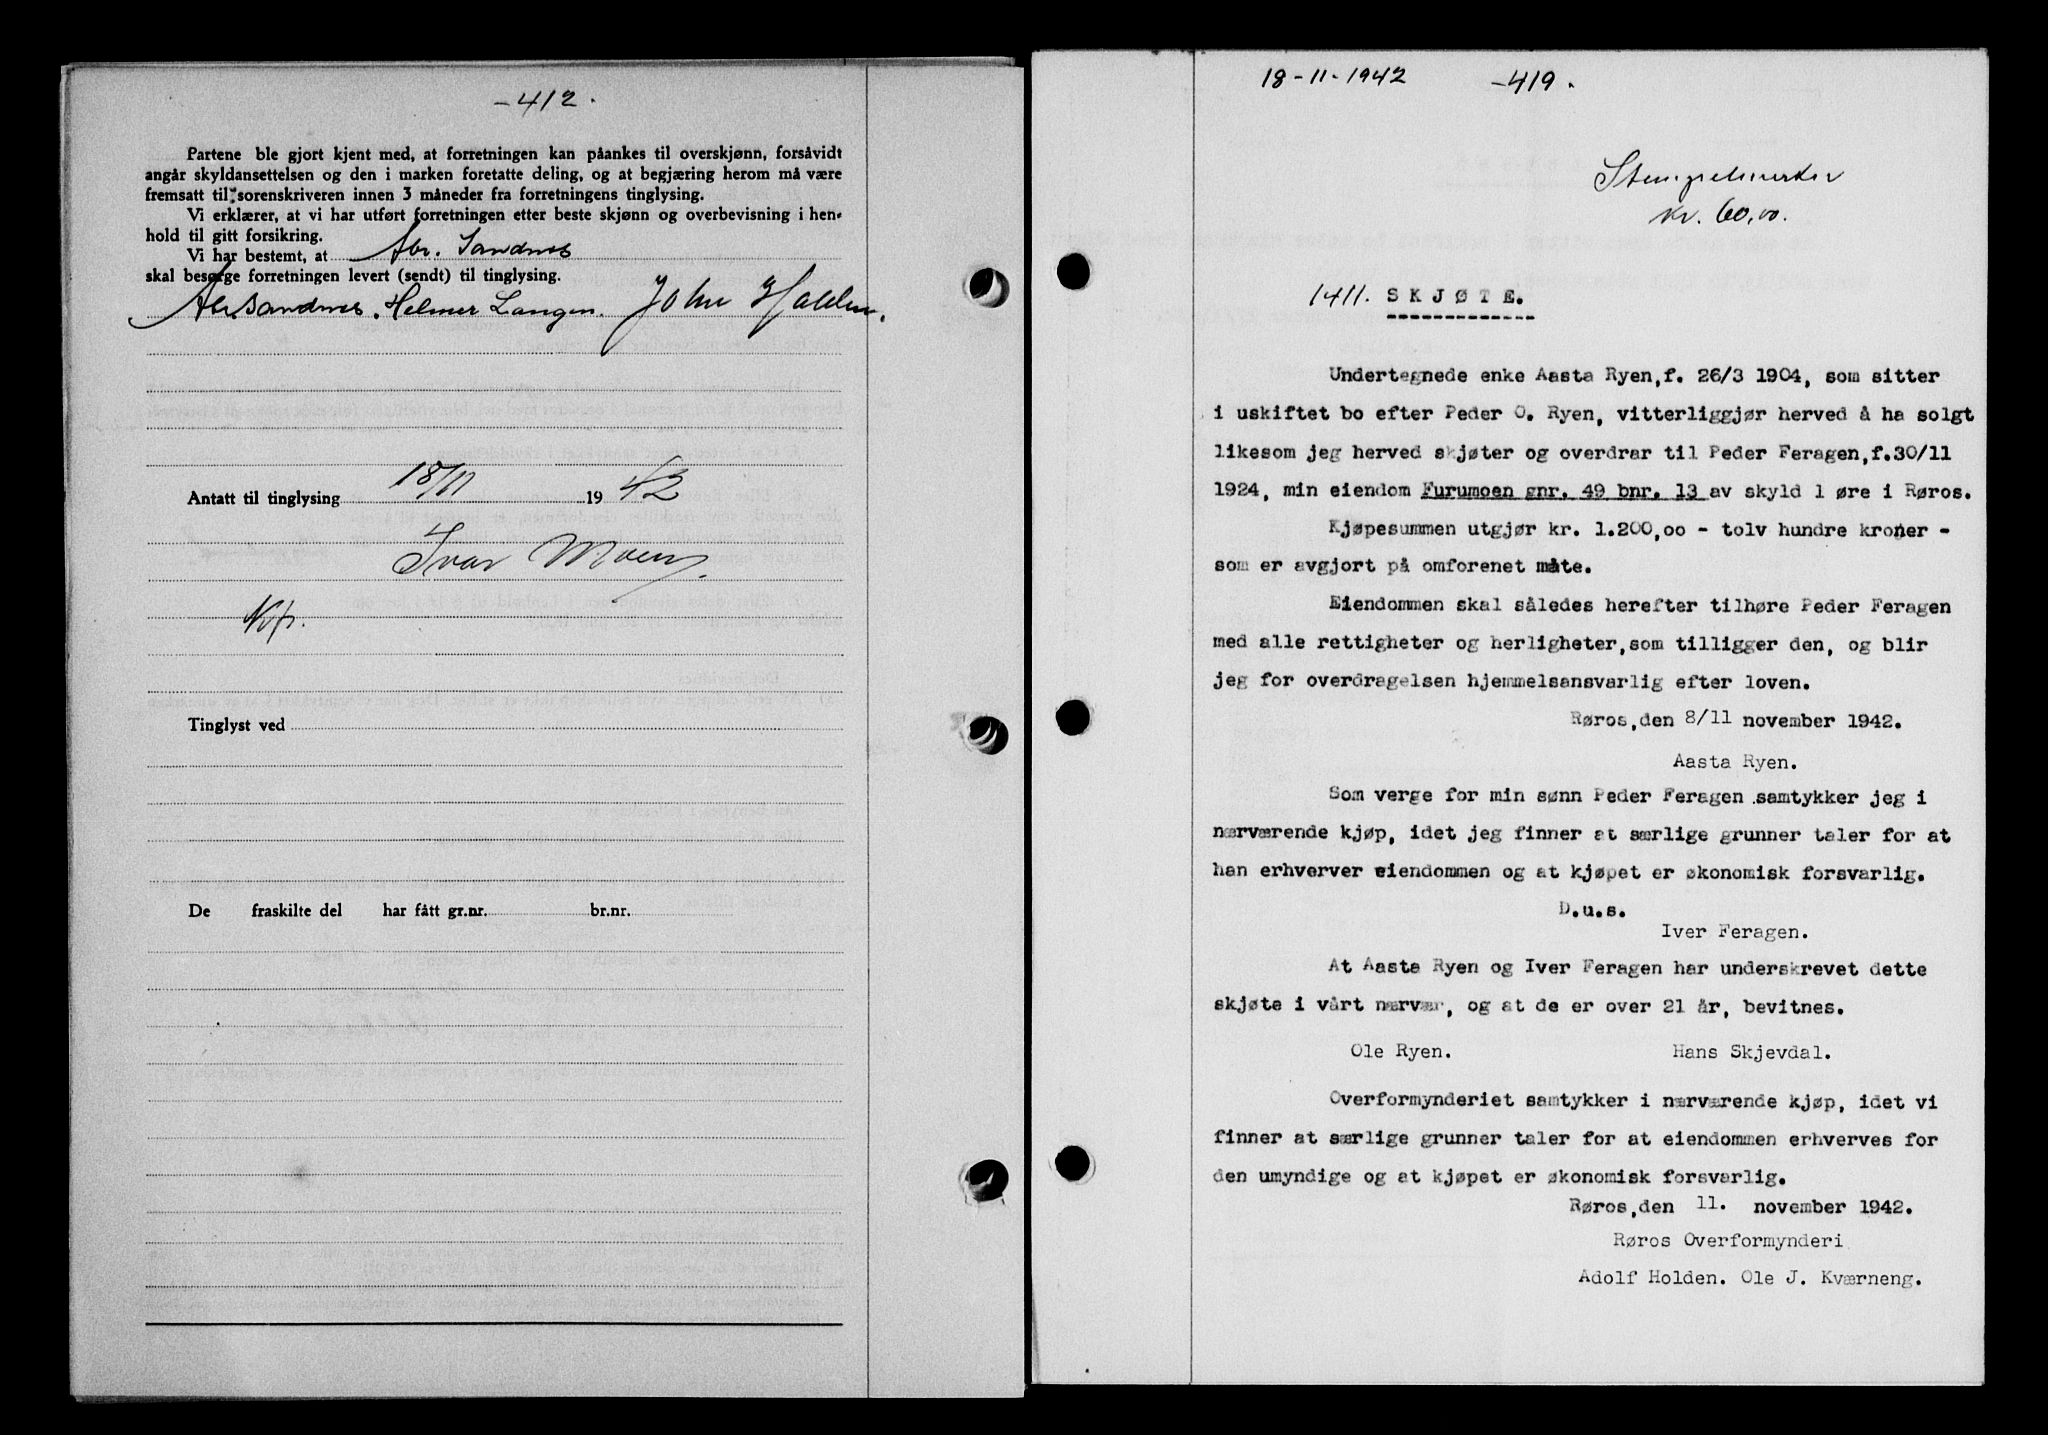 -412.
Partene ble gjort kjent med, at forretningen kan påankes til overskjønn, forsåvidt
angår skyldansettelsen og den i marken foretatte deling, og at begjæring herom må være
fremsatt til sorenskriveren innen 3 måneder fra forretningens tinglysing.
Vi erklærer, at vi har utført forretningen etter beste skjønn og overbevisning i hen-
hold til gitt forsikring.
Vi har bestemt, at Abr. Sandnes
skal besørge forretningen levert (sendt) til tinglysing.
Abr Sandnes. Helmer Langen. John Holden.
Antatt til tinglysing 18/11 1942
Ivar Moen.
Kf.
Tinglyst ved
De fraskilte del har fått gr.nr. br.nr.
18-11-1942 -419.
Stempelmerker
kr. 60,00.
1411. SKJØTE.
Undertegnede enke Aasta Ryen, f. 26/3 1904, som sitter
i uskiftet bo efter Peder O. Ryen, vitterliggjør herved å ha solgt
likesom jeg herved skjøter og overdrar til Peder Feragen, f.30/11
1924, min eiendom Furumoen gnr. 49 bnr. 13 av skyld 1 øre i Røros.
Kjøpesummen utgjør kr. 1.200,00 - tolv hundre kroner -
som er avgjort på omforenet måte.
Eiendommen skal således herefter tilhøre Peder Feragen
med alle rettigheter og herligheter, som tilligger den, og blir
jeg for overdragelsen hjemmelsansvarlig efter loven.
Røros, den 8/11 november 1942.
Aasta Ryen.
Som verge for min sønn Peder Feragen samtykker jeg i
nærværende kjøp, idet jeg finner at særlige grunner taler for at
han erhverver eiendommen og at kjøpet er økonomisk forsvarlig.
D.u.s.
Iver Feragen.
At Aasta Ryen og Iver Feragen har underskrevet dette
skjøte i vårt nærvær, og at de er over 21 år, bevitnes.
Ole Ryen. Hans Skjevdal.
Overformynderiet samtykker i nærværende kjøp, idet vi
finner at særlige grunner taler for at eiendommen erhverves for
den umyndige og at kjøpet er økonomisk forsvarlig.
Røros, den 11. november 1942.
Røros Overformynderi
Adolf Holden. Ole J. Kværneng.